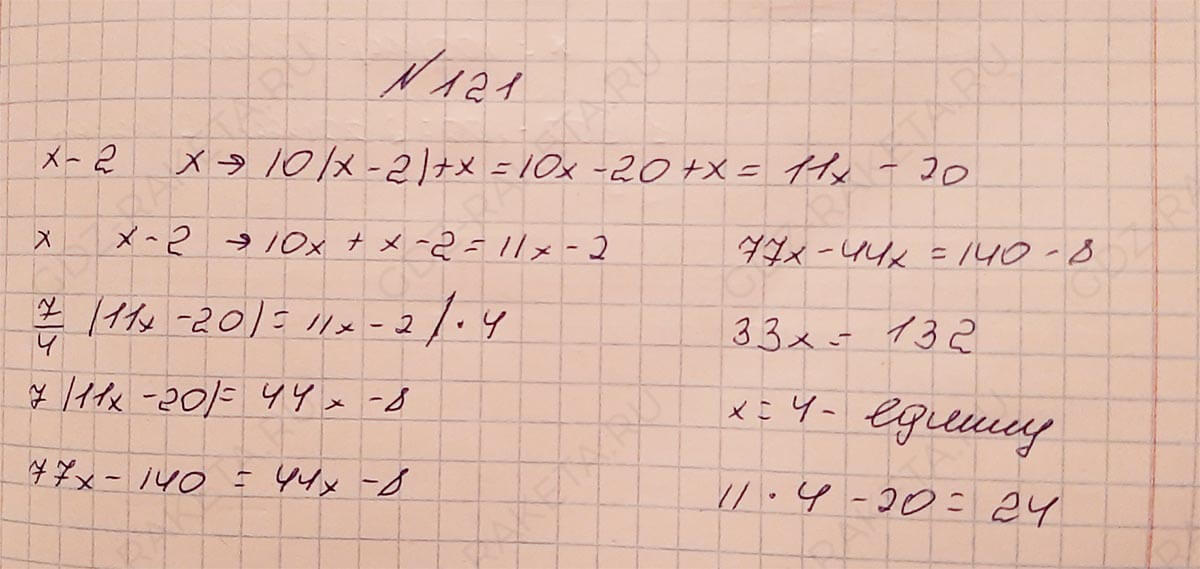 N 121
x - 2   x → 10(x - 2) + x = 10x - 20 + x = 11x - 20
x   x - 2 → 10x + x - 2 = 11x - 2
7/4 (11x - 20) = 11x - 2 / · 4
7 (11x - 20) = 44x - 8
77x - 140 = 44x - 8
77x - 44x = 140 - 8
33x = 132
x = 4 - единиц
11 · 4 - 20 = 24
GDZ-RAKETA.RU